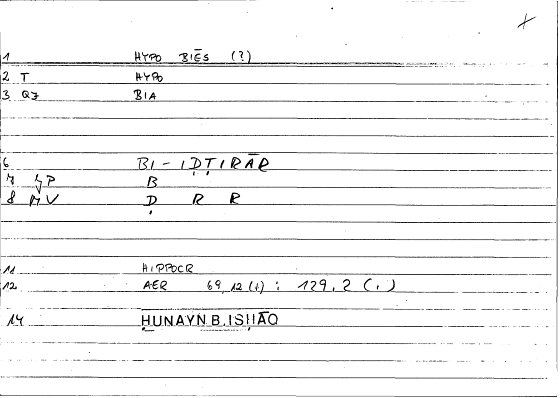 1 HYPO BIĒS (?)
2 T HYPO
3 QJ BIA
6 BI - IḌṬIRĀR
7 B
8 ḌRR
11 HIPPOCR
12 AER 69,12 (+) : 129,2 (,)
14 ḤUNAYN B. ISḤĀQ